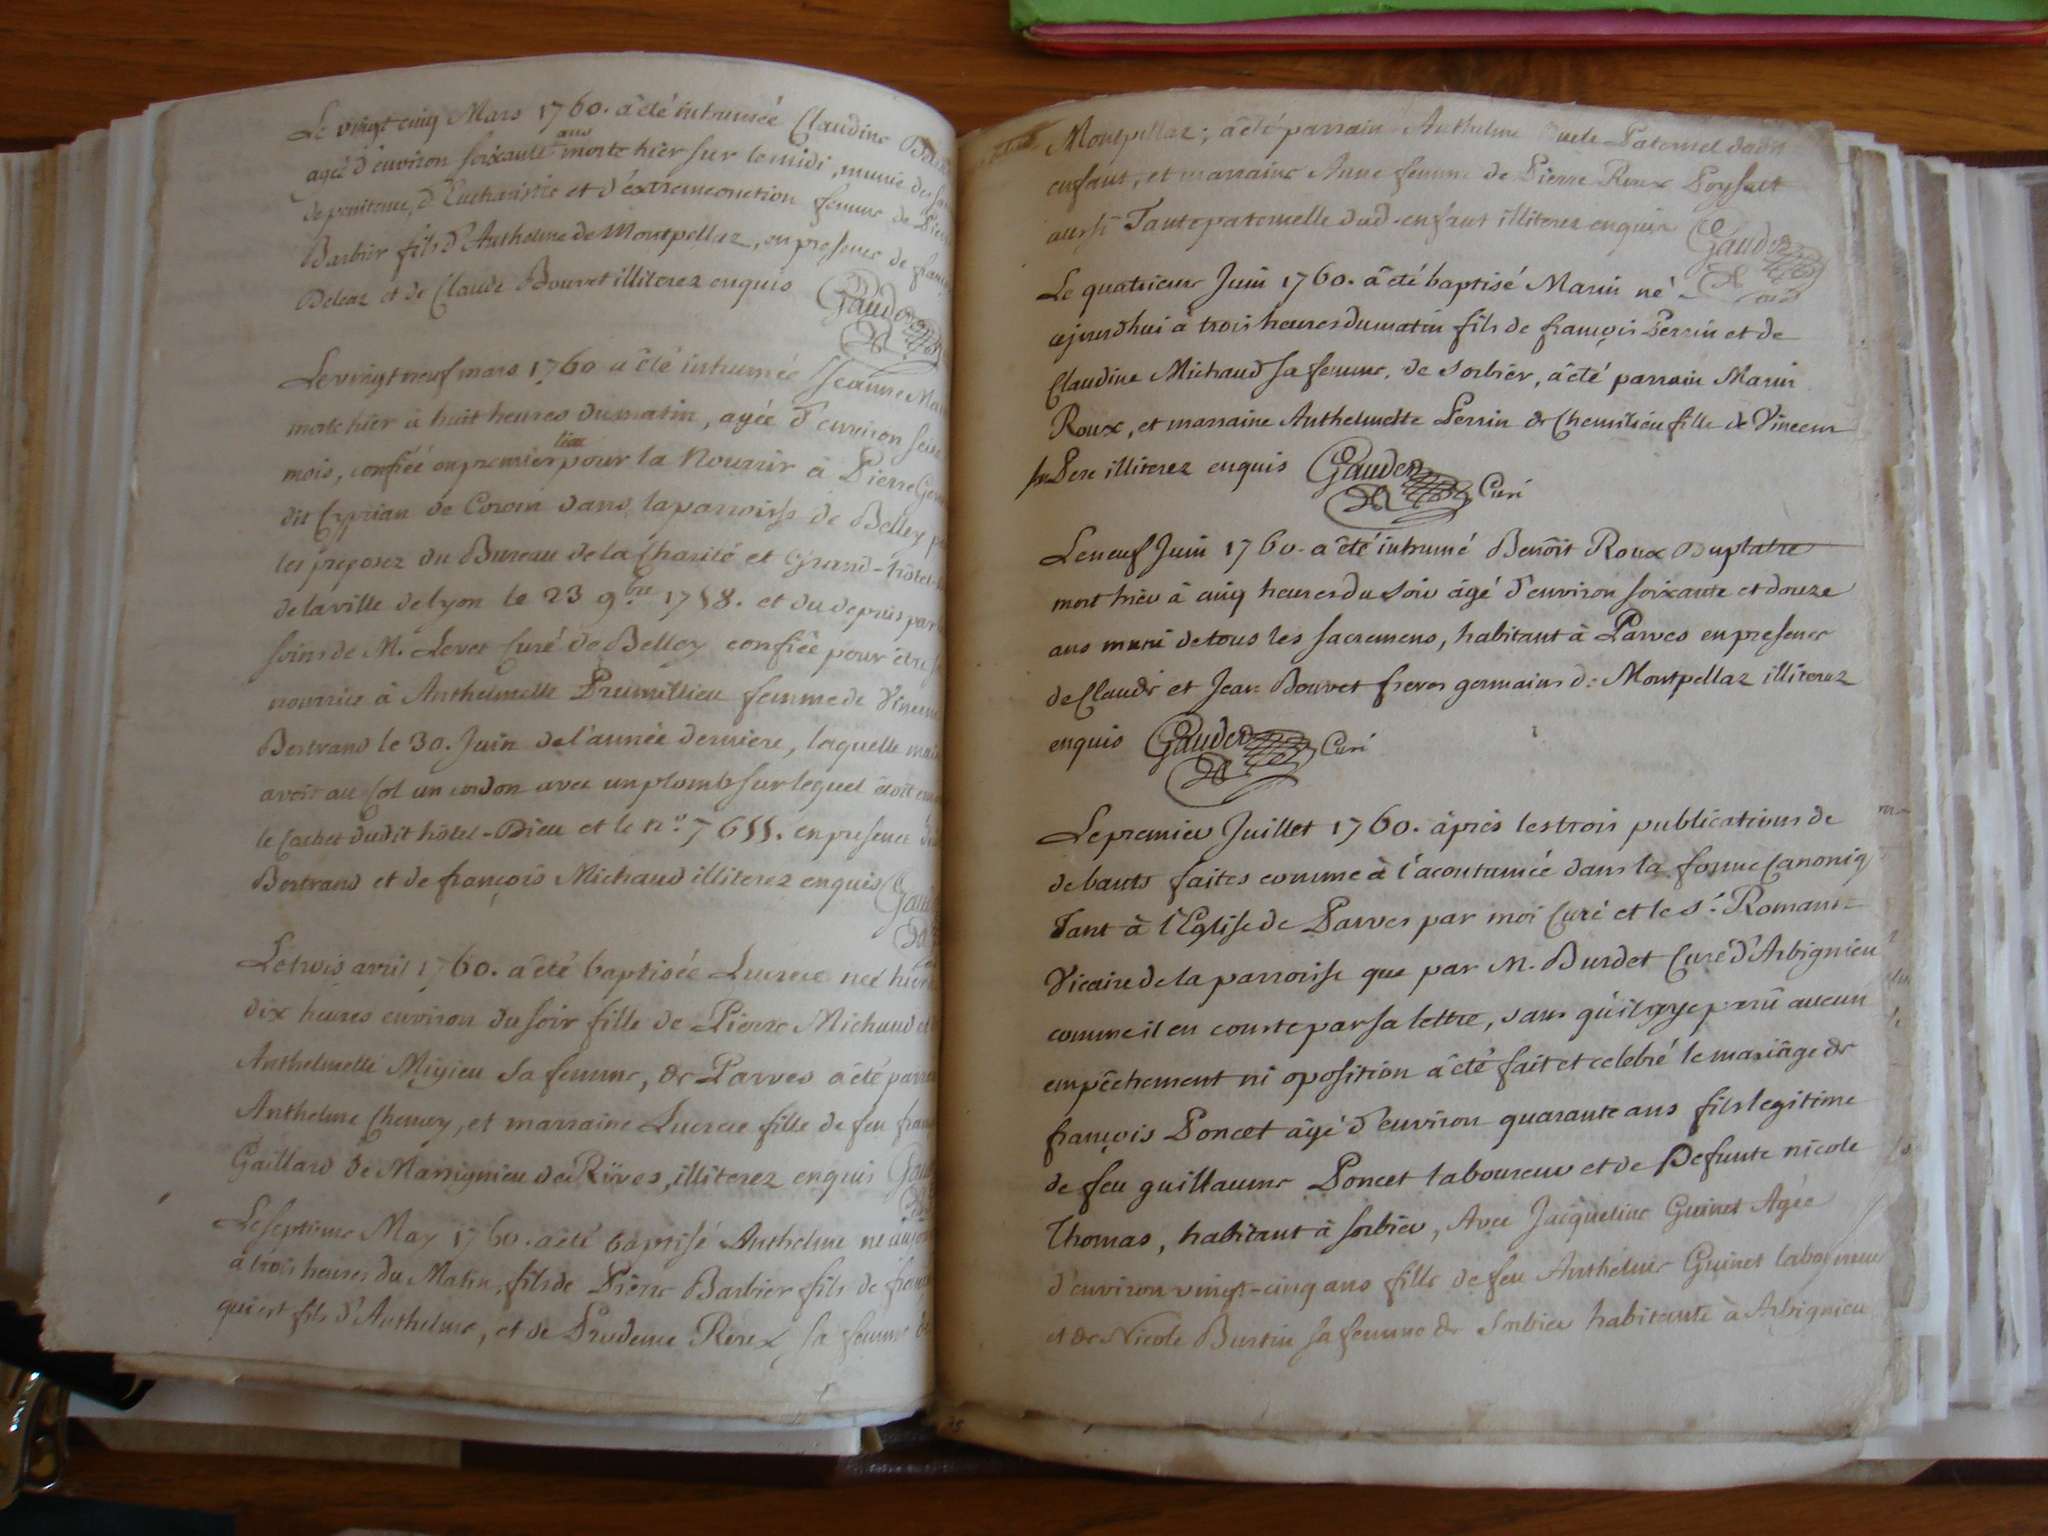 Le vingt cinq Mars 1760. a été inhumée Claudine
agée d'environ soixante ans morte hier sur le midi, munie des
de penitence, d'Eucharistie et d'éxtremeonction femme de
Barbier fils d'Anthelme de Montpellaz, en presence de
Deleaz et de Claude Bouvet illiterez enquis Gauden
Le vingt neuf mars 1760 a été inhumée Jeanne
morte hier à huit heures du matin, agée d'environ
mois, confiée en premier lieu pour la nourrir à Pierre
dit Cyprian de Coron dans la parroisse de Belley
les preposez du Bureau de la Charité et Grand-hôtel-
de la ville de lyon le 23 9bre 1758. et du depuis par
soins de Mr. Levet Curé de Belley confiée pour être
nourrie à Anthelmette Prumillieu femme de Vincent
Bertrand le 30. Juin de l'année derniere, laquelle
avoit au Col un cordon avec un plomb sur lequel étoit
le Cachet dudit hôtel-Dieu et le no. 7655. en presence
Bertrand et de françois Michaud illiterez enquis
Le trois avril 1760. a été baptisée Lucrece neé hier
dix heures environ du soir fille de Pierre Michaud et
Anthelmette Migieu sa femme, de Parves a été
Anthelme Chevrey, et marraine Lucrece fille de feu
Gaillard de Massignieu de Rives, illiterez enquis
Le septieme May 1760. a été baptisé Anthelme né
à trois heures du Matin, fils de Pierre Barbier fils de
qui est fils d'Anthelme, et de Prudence Roux sa femme
Montpellaz; a été parrain Anthelme oncle Paternel dudit
enfant, et marraine Anne femme de Pierre Roux Poysat
aussi Tante paternelle dud. enfant illiterez enquis Gauden
Le quatrieme Juin 1760. a été baptisé Marin né
cejourdhui à trois heures du matin fils de françois Perrin et de
Claudine Michaud sa femme, de Sorbier, a été parrain Marin
Roux, et marraine Anthelmette Perrin de Chemilieu fille de Vincent
son Pere illiterez enquis Gauden Curé
Le neuf Juin 1760. a été inhumé Benoît Roux Duplatre
mort hier à cinq heures du soir âgé d'environ soixante et douze
ans muni de tous les sacremens, habitant à Parves en presence
de Claude et Jean Bouvet freres germains de Montpellaz illiterez
enquis Gauden Curé
Le premier Juillet 1760. âprés les trois publications de
de bants faites comme à l'acoutumée dans la forme Canoniq
Tant à l'Eglise de Parves par moi Curé et le Sr. Romans
Vicaire de la parroisse que par M. Burdet Curé d'Arbignieu
comme il en conste par sa lettre, sans qu'il aye parû aucun
empêchement ni oposition a été fait et celebré le mariâge de
françois Poncet âgé d'environ quarante ans fils legitime
de feu guillaume Poncet laboureur et de Defunte nicole
Thomas, habitant à sorbier, Avec Jacqueline Guinet Agée
d'environ vingt-cinq ans fille de feu Anthelme Guinet laboureur
et de Nicole Burtin sa femme de Sorbier habitante à Arbignieu